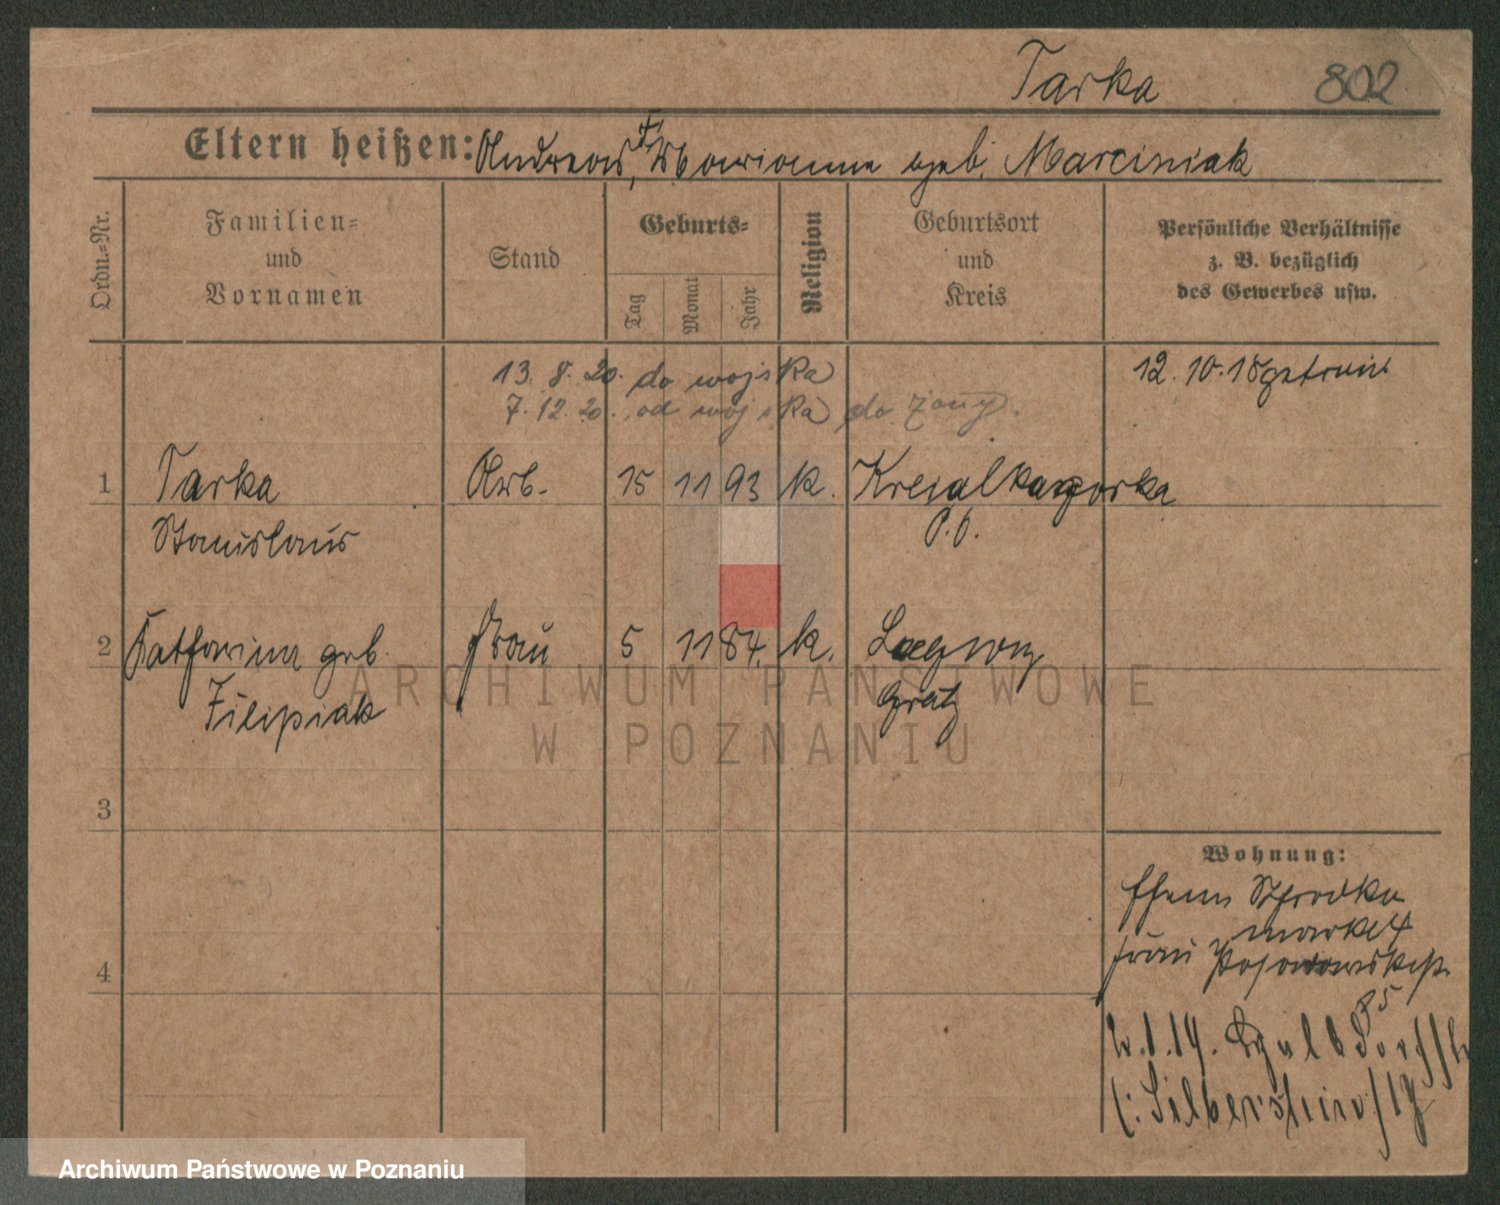 Tarka 802
Eltern heißen: Andreas, † Marianne geb. Marciniak
Ordn.-Nr.
Familien- und Vornamen
Stand
Geburts-
Tag Monat Jahr
Religion
Geburtsort und Kreis
Persönliche Verhältnisse
z. B. bezüglich
des Gewerbes usw.
13. 8. 20. do wojska
7. 12. 20. od wojska do żony.
12. 10. 18 getraut
1 Tarka Arb. 15 11 93 k.
Stanislaus P. O.
2 Katharina geb. Frau 5 11 84. k.
Filipiak Grätz
3
4
Wohnung:
Ehem. Schrodka
markt 4
Frau
75
2. 1. 14.
ARCHIWUM PAŃSTWOWE
W POZNANIU
Archiwum Państwowe w Poznaniu